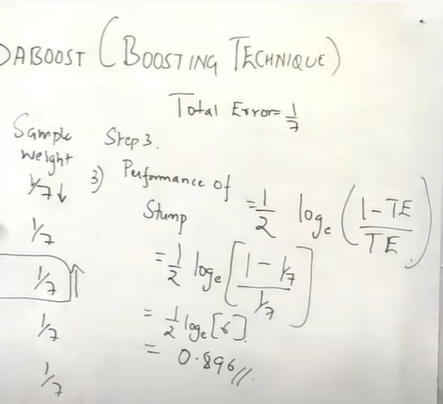 DABOOST (BOOSTING TECHNIQUE)
Total Error = 1/7
Sample weight
1/7 ↓
1/7
1/7 ↑
1/7
1/7
Step 3.
3) Performance of Stump = 1/2 loge (1 - TE / TE)
= 1/2 loge [1 - 1/7 / 1/7]
= 1/2 loge [6]
= 0.896//.